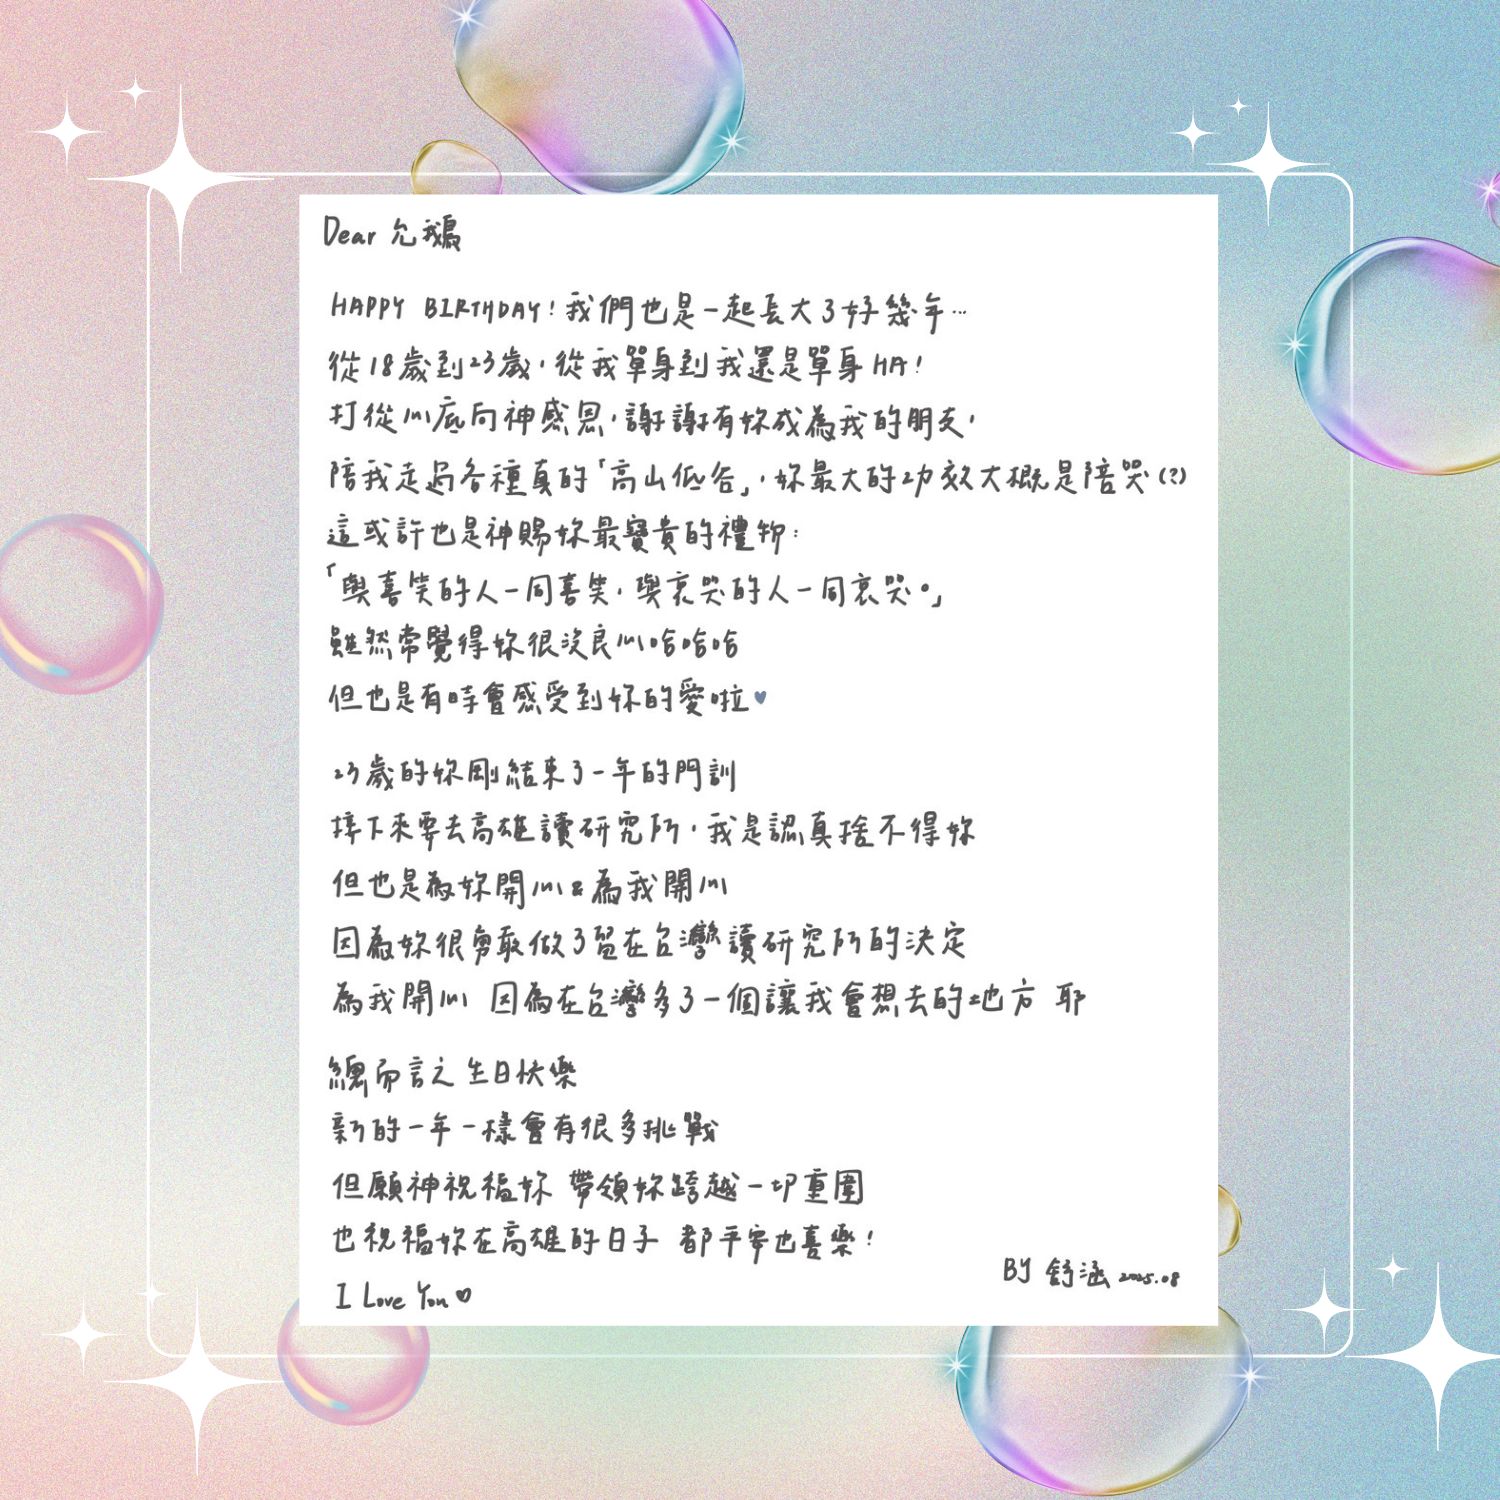 Dear 允鵝
HAPPY BIRTHDAY! 我們也是一起長大了好幾年…
從18歲到23歲，從我單身到我還是單身 HA!
打從心底向神感恩，謝謝有妳成為我的朋友，
陪我走過各種真的「高山低谷」，妳最大的功效大概是陪哭(?)
這或許也是神賜妳最寶貴的禮物：
「與喜笑的人一同喜笑，與哀哭的人一同哀哭。」
雖然常覺得妳很沒良心哈哈哈
但也是有時會感受到妳的愛啦♥
23歲的妳剛結束了一年的門訓
接下來要去高雄讀研究所，我是認真捨不得妳
但也是為妳開心&為我開心
因為妳很勇敢做了留在台灣讀研究所的決定
為我開心 因為在台灣多了一個讓我會想去的地方 耶
總而言之 生日快樂
新的一年一樣會有很多挑戰
但願神祝福妳 帶領妳跨越一切重圍
也祝福妳在高雄的日子 都平安也喜樂!
I Love You ♡
BY 舒涵 2025.08